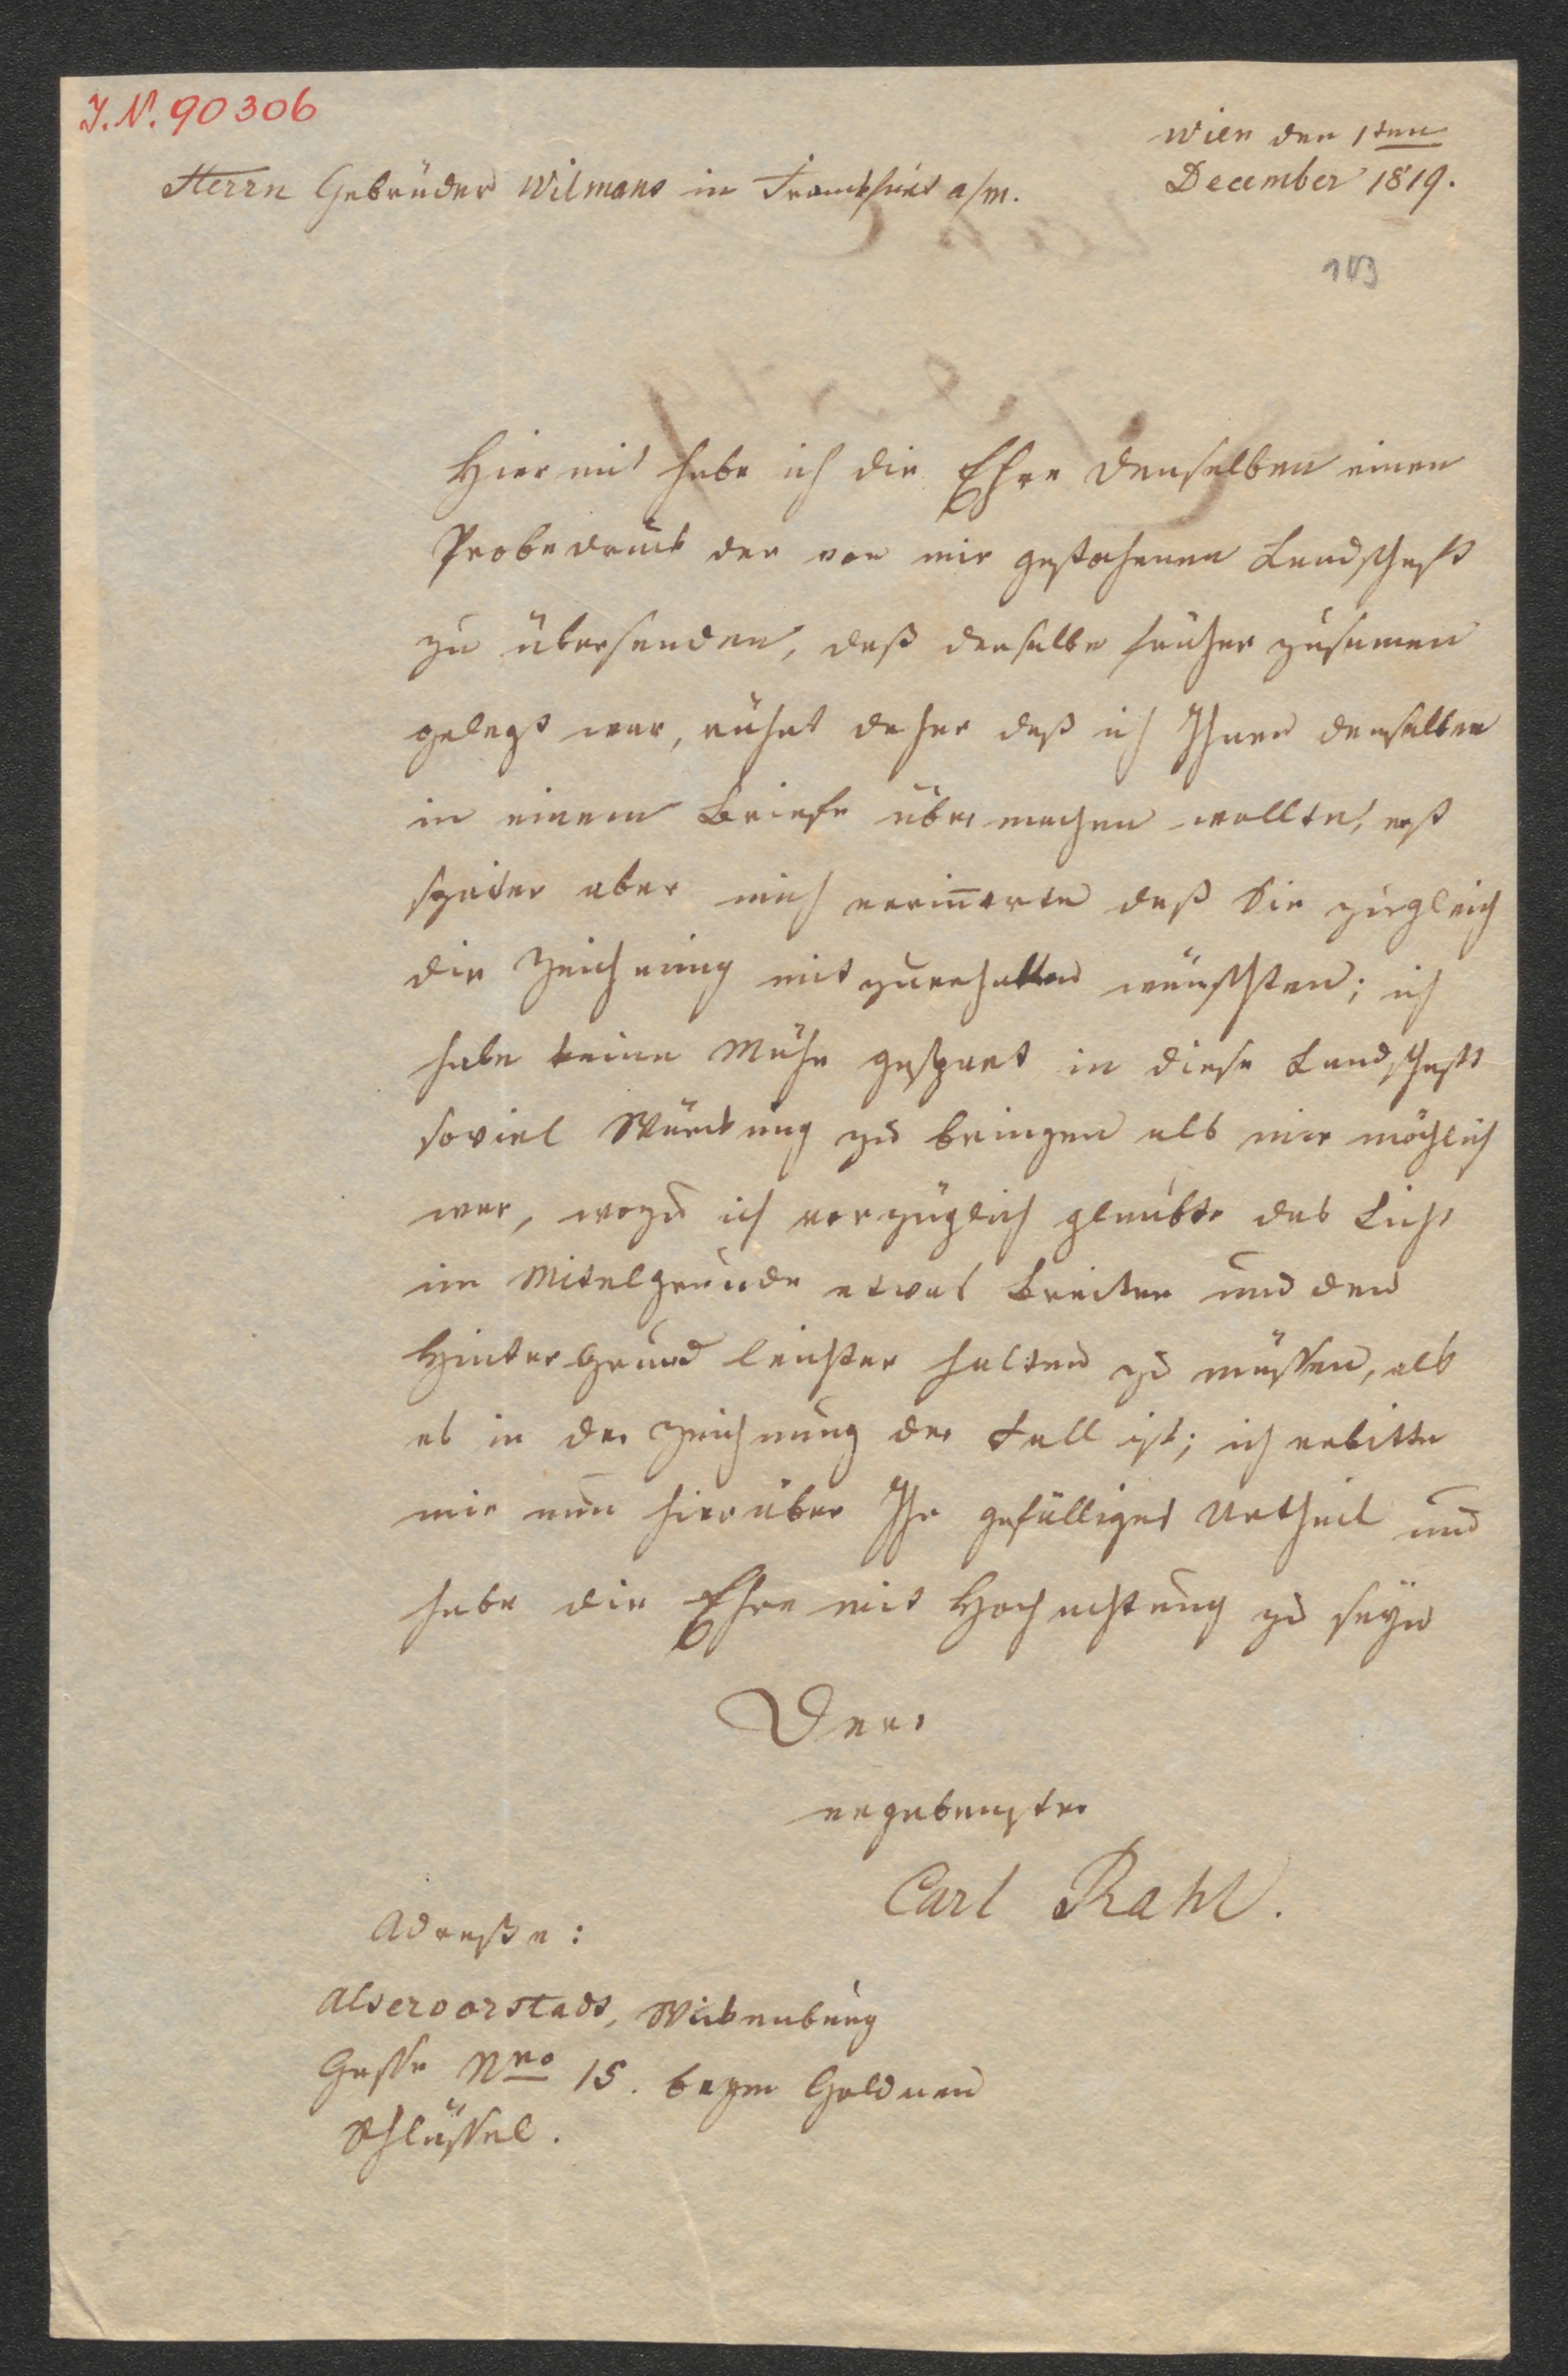 I.N. 90306
Wien den 1ten
December 1819.
Herrn Gebrüder Wilmans in Franckfurt a/m.
103
Hiermit habe ich die Ehre denselben einen
Probedruck der von mir gestochenen Landschaft
zu übersenden, daß derselbe früher zusamen
gelegt war, rührt daher daß ich Ihnen denselben
in einem Briefe übermachen wollte, erst
später aber mich erinnerte daß Sie zugleich
die Zeichnung mit zurerhalten wünschten; ich
habe keine Mühe gespart in diese Landschaft
soviel Würckung zu bringen als mir möglich
war, wozu ich vorzüglich glaubte das Licht
im Mitelgrunde etwas breiter und den
Hintergrund leichter halten zu müssen, als
es in der Zeichnung der Fall ist; ich erbitte
mir nun hierüber Ihr gefälliges Urtheil und
habe die Ehre mit Hochachtung zu seyn
Dero
ergebenster
Carl Rahl.
Adresse:
Alservorstadt, Wickenburg
Gasse Nro 15. beym Goldnen
Schlüssel.